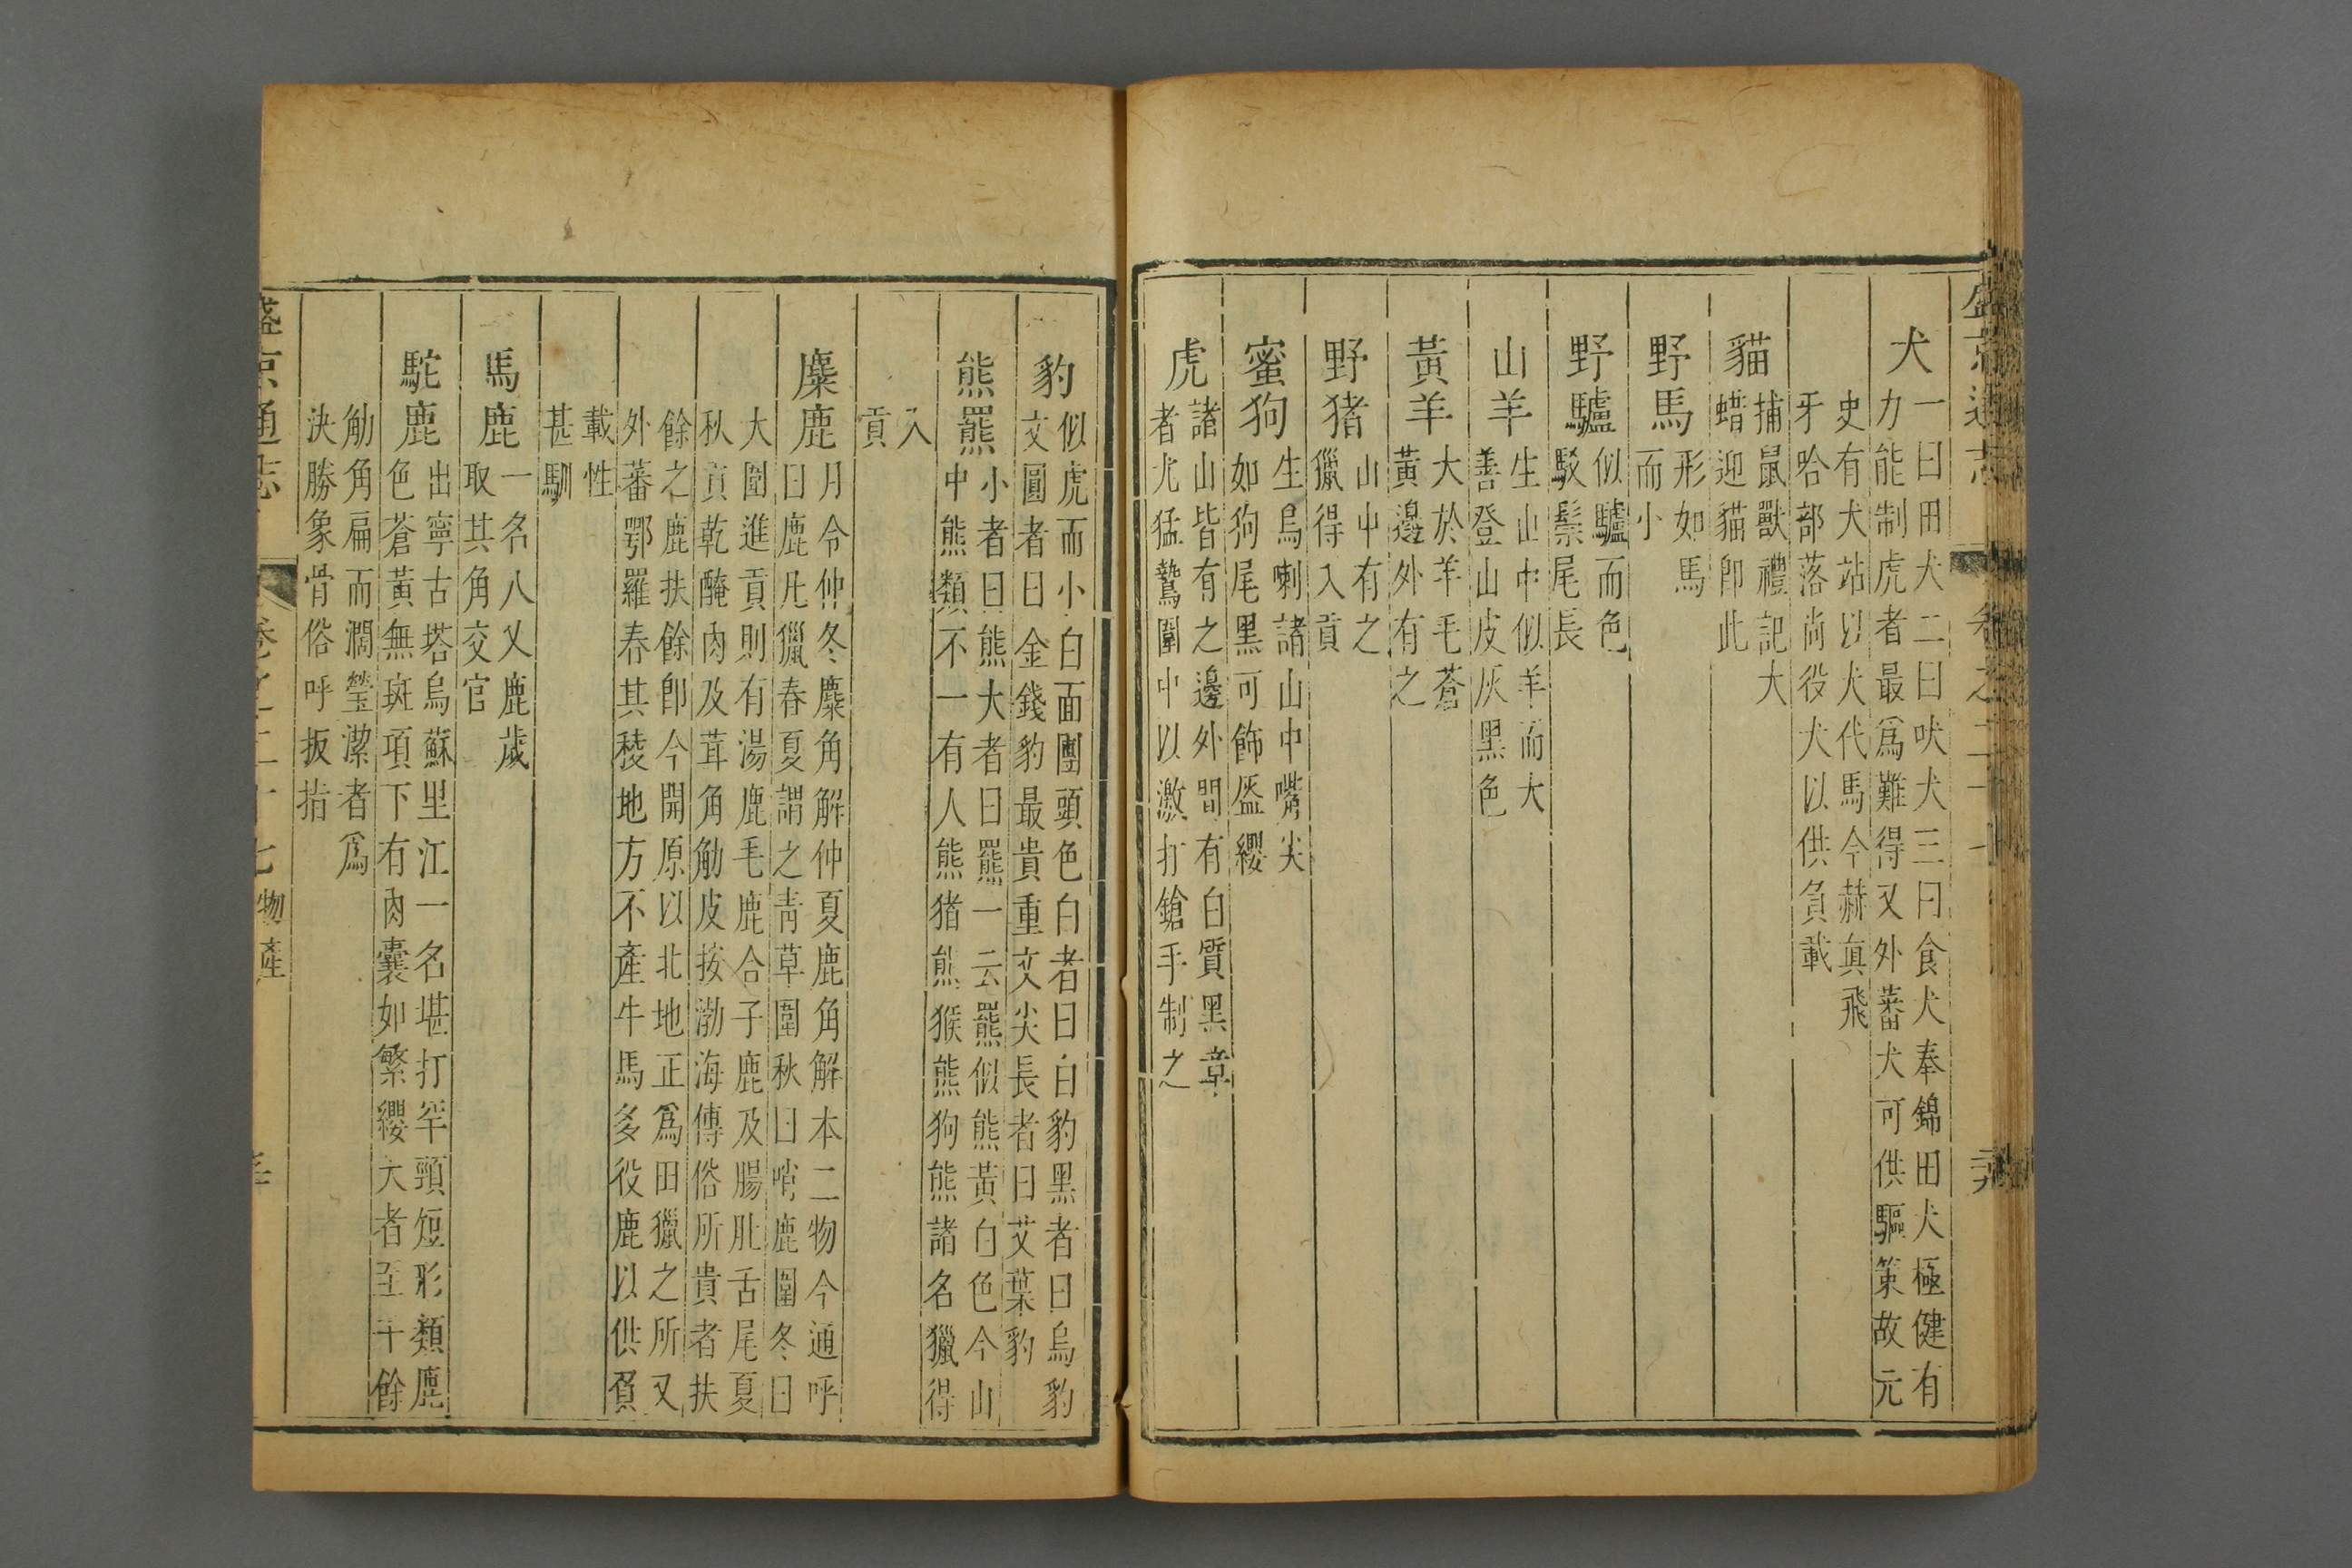 盛京通志
卷之二十
犬一曰田犬二曰吠犬三曰食犬奉錦田犬極健有
力能制虎者最爲難得又外蕃犬可供驅策故元
史有犬站以犬代馬今赫真飛
牙哈部落尚役犬以供負載
貓捕鼠獸禮記大
蜡迎貓即此
野馬形如馬
而小
野驢似驢而色
駁鬃尾長
山羊生山中似羊而大
善登山皮灰黑色
黃羊大於羊毛蒼
黃邊外有之
野猪山中有之
獵得入貢
蜜狗生烏喇諸山中嘴尖
如狗尾黑可飾盔纓
虎諸山皆有之邊外間有白質黑章
者尤猛鷙圍中以激打鎗手制之
豹似虎而小白面團頭色白者曰白豹黑者曰烏豹
文圓者曰金錢豹最貴重文尖長者曰艾葉豹
熊羆小者曰熊大者曰羆一云羆似熊黃白色今山
中熊類不一有人熊猪熊猴熊狗熊諸名獵得
入
貢
麋鹿月令仲冬麋角解仲夏鹿角解本二物今通呼
曰鹿凡獵春夏謂之青草圍秋曰哨鹿圍冬曰
大圍進貢則有湯鹿毛鹿合子鹿及腸肚舌尾夏
秋貢乾醃肉及茸角觔皮按渤海傳俗所貴者扶
餘之鹿扶餘即今開原以北地正爲田獵之所又
外蕃鄂羅春其稜地方不產牛馬多役鹿以供負
載性
甚馴
馬鹿一名八乂鹿歲
取其角交官
駝鹿出寧古塔烏蘇里江一名堪打罕頸短形類鹿
色蒼黃無斑項下有肉囊如繁纓大者至千餘
觔角扁而濶瑩潔者爲
決勝象骨俗呼扳指
盛京通志
卷之二十七
物產